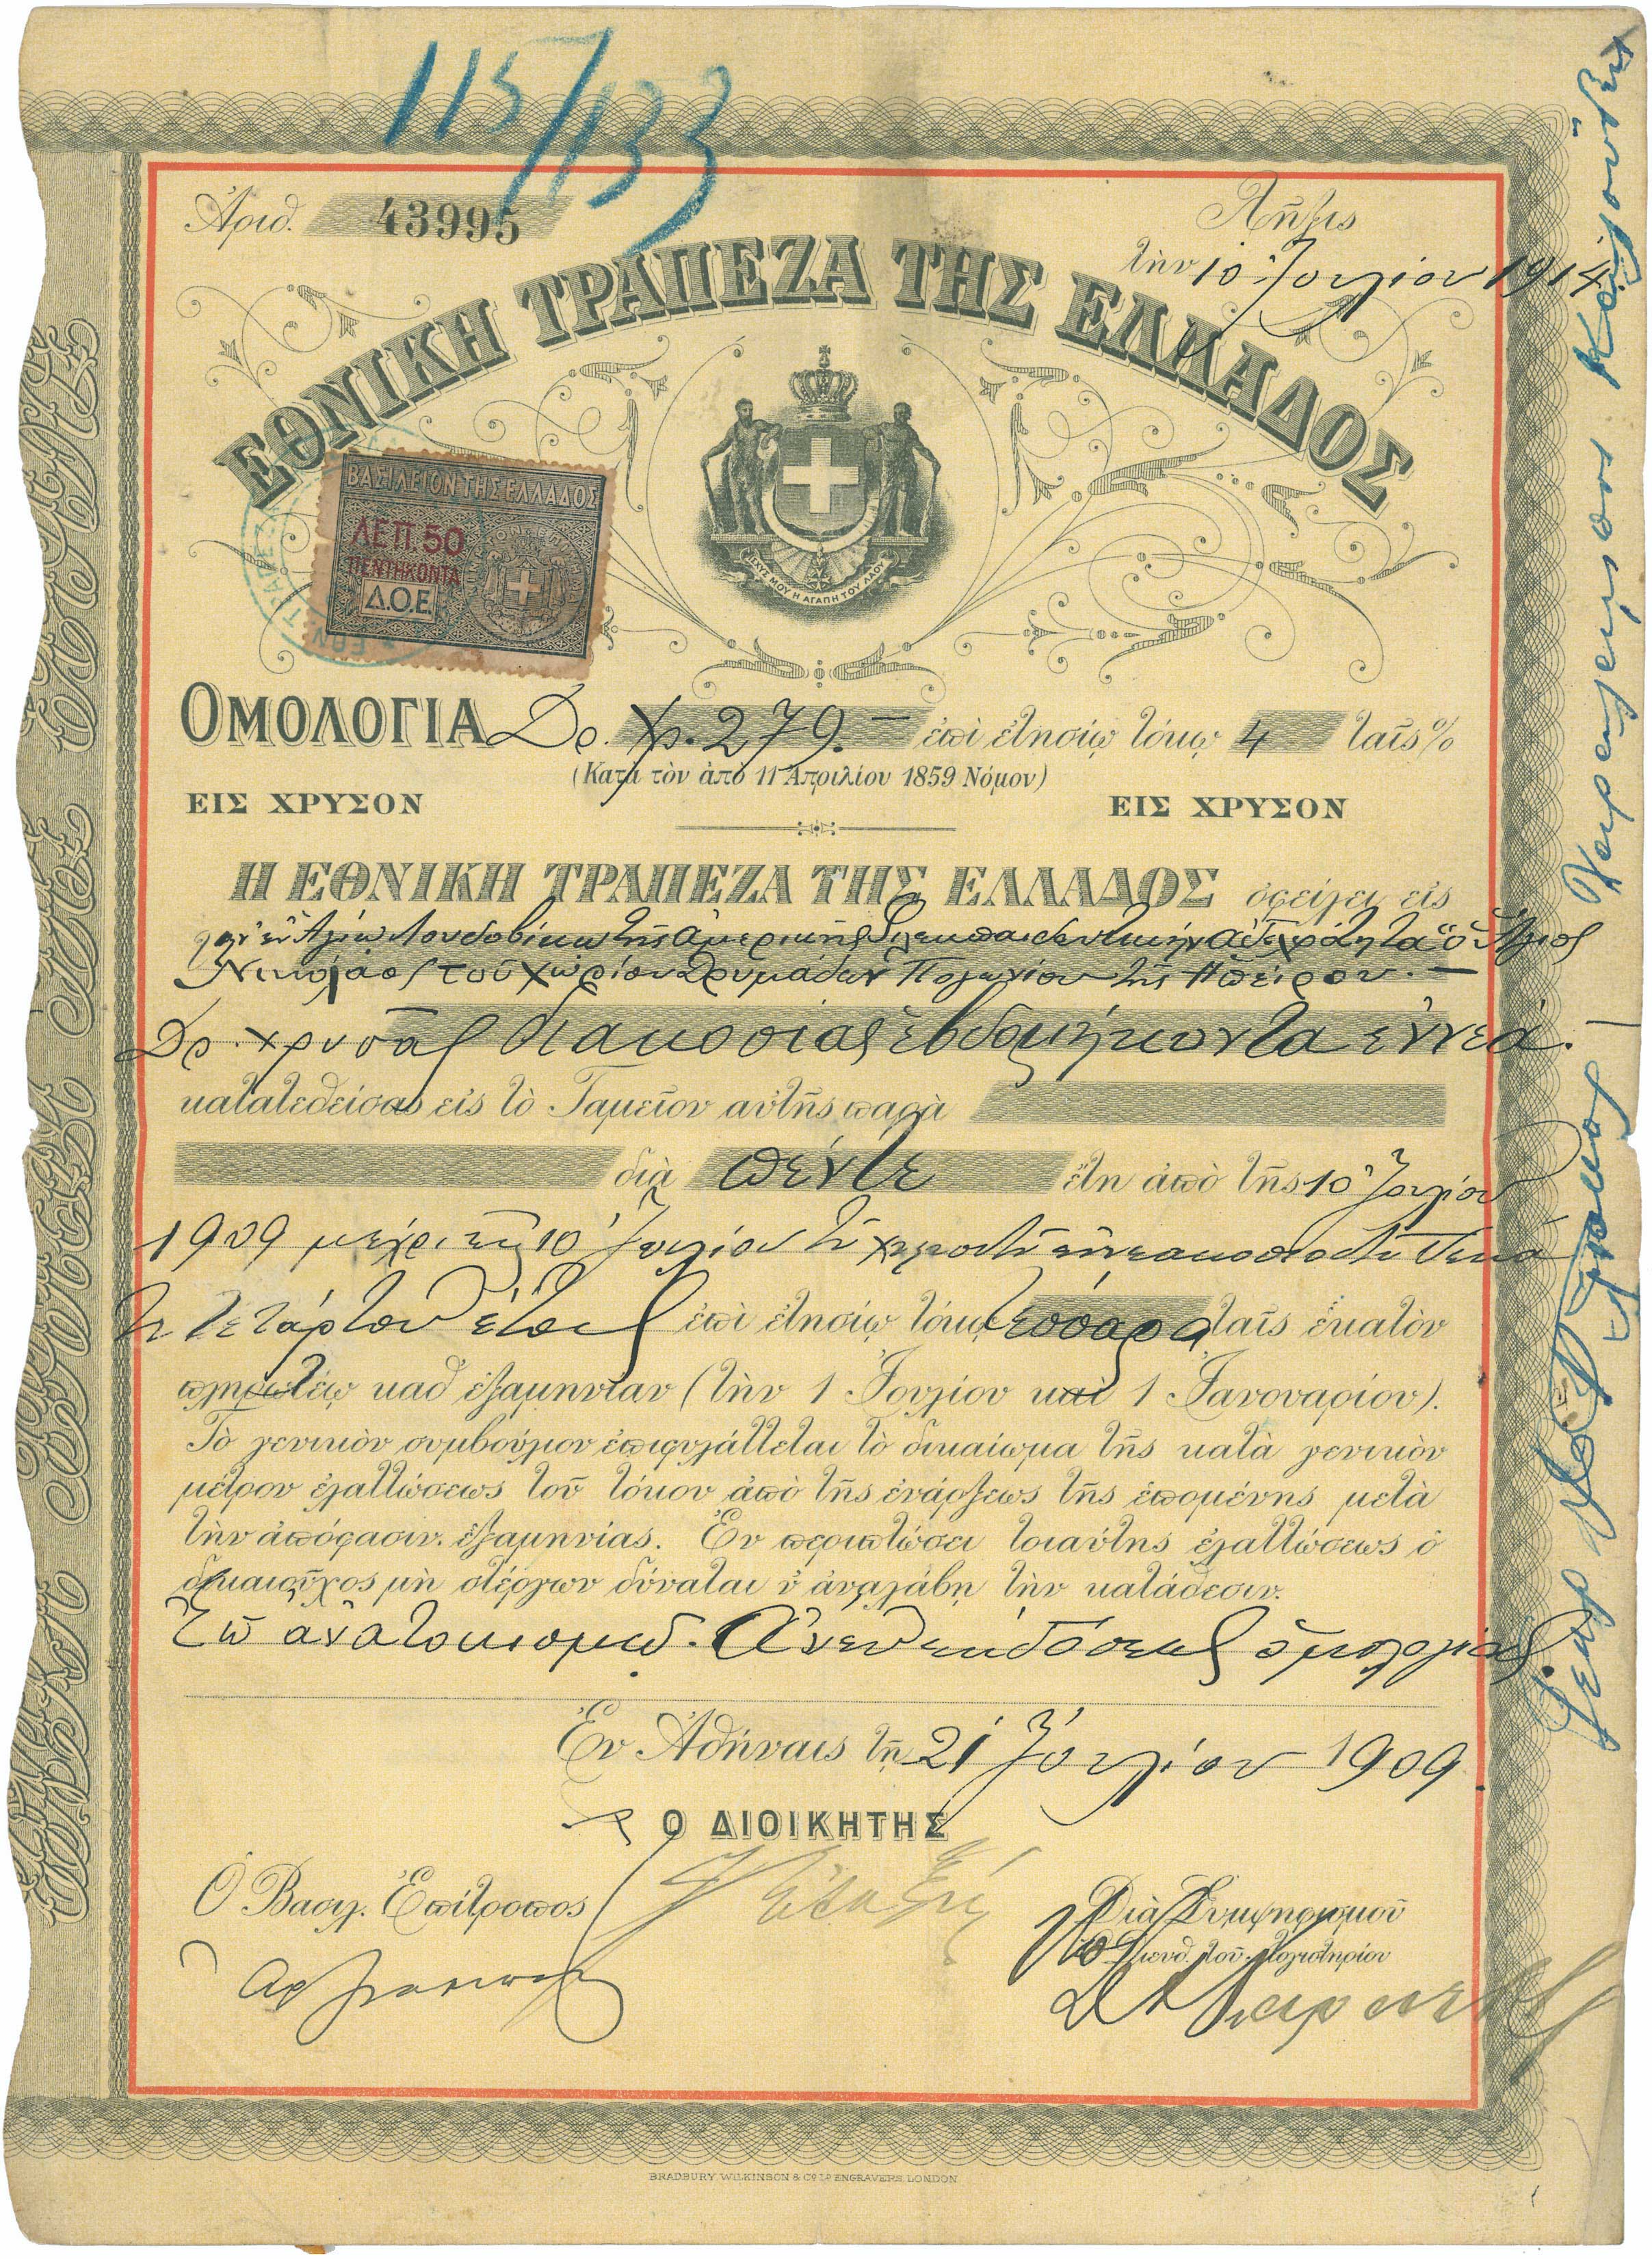 115/133
Ἀριθ. 43995
Λῆξις
τὴν 10 Ἰουλίου 1914
ΕΘΝΙΚΗ ΤΡΑΠΕΖΑ ΤΗΣ ΕΛΛΑΔΟΣ
ΒΑΣΙΛΕΙΟΝ ΤΗΣ ΕΛΛΑΔΟΣ
ΛΕΠ. 50
ΠΕΝΤΗΚΟΝΤΑ
Δ.Ο.Ε.
ΙΣΧΥΣ ΜΟΥ Η ΑΓΑΠΗ ΤΟΥ ΛΑΟΥ
ΟΜΟΛΟΓΙΑ Δρ. Χρ. 279.— ἐπὶ ἐτησίῳ τόκῳ 4 τοῖς %
(Κατὰ τὸν ἀπὸ 11 Ἀπριλίου 1859 Νόμον)
ΕΙΣ ΧΡΥΣΟΝ ΕΙΣ ΧΡΥΣΟΝ
Η ΕΘΝΙΚΗ ΤΡΑΠΕΖΑ ΤΗΣ ΕΛΛΑΔΟΣ ὀφείλει εἰς
τὴν ἐν Ἁγίῳ Λουδοβίκῳ τῆς Ἀμερικῆς Φιλεκπαιδευτικὴν Ἀδελφότητα "ὁ Ἅγιος
Νικόλαος" τοῦ χωρίου Δρυμάδων Πωγωνίου τῆς Ἠπείρου.—
Δρ. χρυσᾶς διακοσίας ἑβδομήκοντα ἐννέα.
κατατεθείσας εἰς τὸ Ταμεῖον αὐτῆς παρὰ
διὰ πέντε ἔτη ἀπὸ τῆς 10 Ἰουλίου
1909 μέχρι τῆς 10 Ἰουλίου τοῦ χιλιοστοῦ ἐννεακοσιοστοῦ δεκά
του τετάρτου ἔτους ἐπὶ ἐτησίῳ τόκῳ τέσσαρα τοῖς ἑκατὸν
πληρωτέῳ καθ' ἑξαμηνίαν (τὴν 1 Ἰουλίου καὶ 1 Ἰανουαρίου).
Τὸ γενικὸν συμβούλιον ἐπιφυλάττεται τὸ δικαίωμα τῆς κατὰ γενικὸν
μέτρον ἐλαττώσεως τοῦ τόκου ἀπὸ τῆς ἐνάρξεως τῆς ἑπομένης μετὰ
τὴν ἀπόφασιν ἑξαμηνίας. Ἐν περιπτώσει τοιαύτης ἐλαττώσεως ὁ
δικαιοῦχος μὴ στέργων δύναται ν' ἀναλάβῃ τὴν κατάθεσιν.
Ἐπ' ἀνατοκισμῷ. Ἄνευ ἐκδόσεως ὁμολογίας.
Ἐν Ἀθήναις τῇ 21 Ἰουλίου 1909
Ο ΔΙΟΙΚΗΤΗΣ
Ὁ Βασιλ. Ἐπίτροπος
Διὰ Συμψηφισμοῦ
Ὁ Διευθ. τοῦ Λογιστηρίου
BRADBURY WILKINSON & Co Ld ENGRAVERS, LONDON